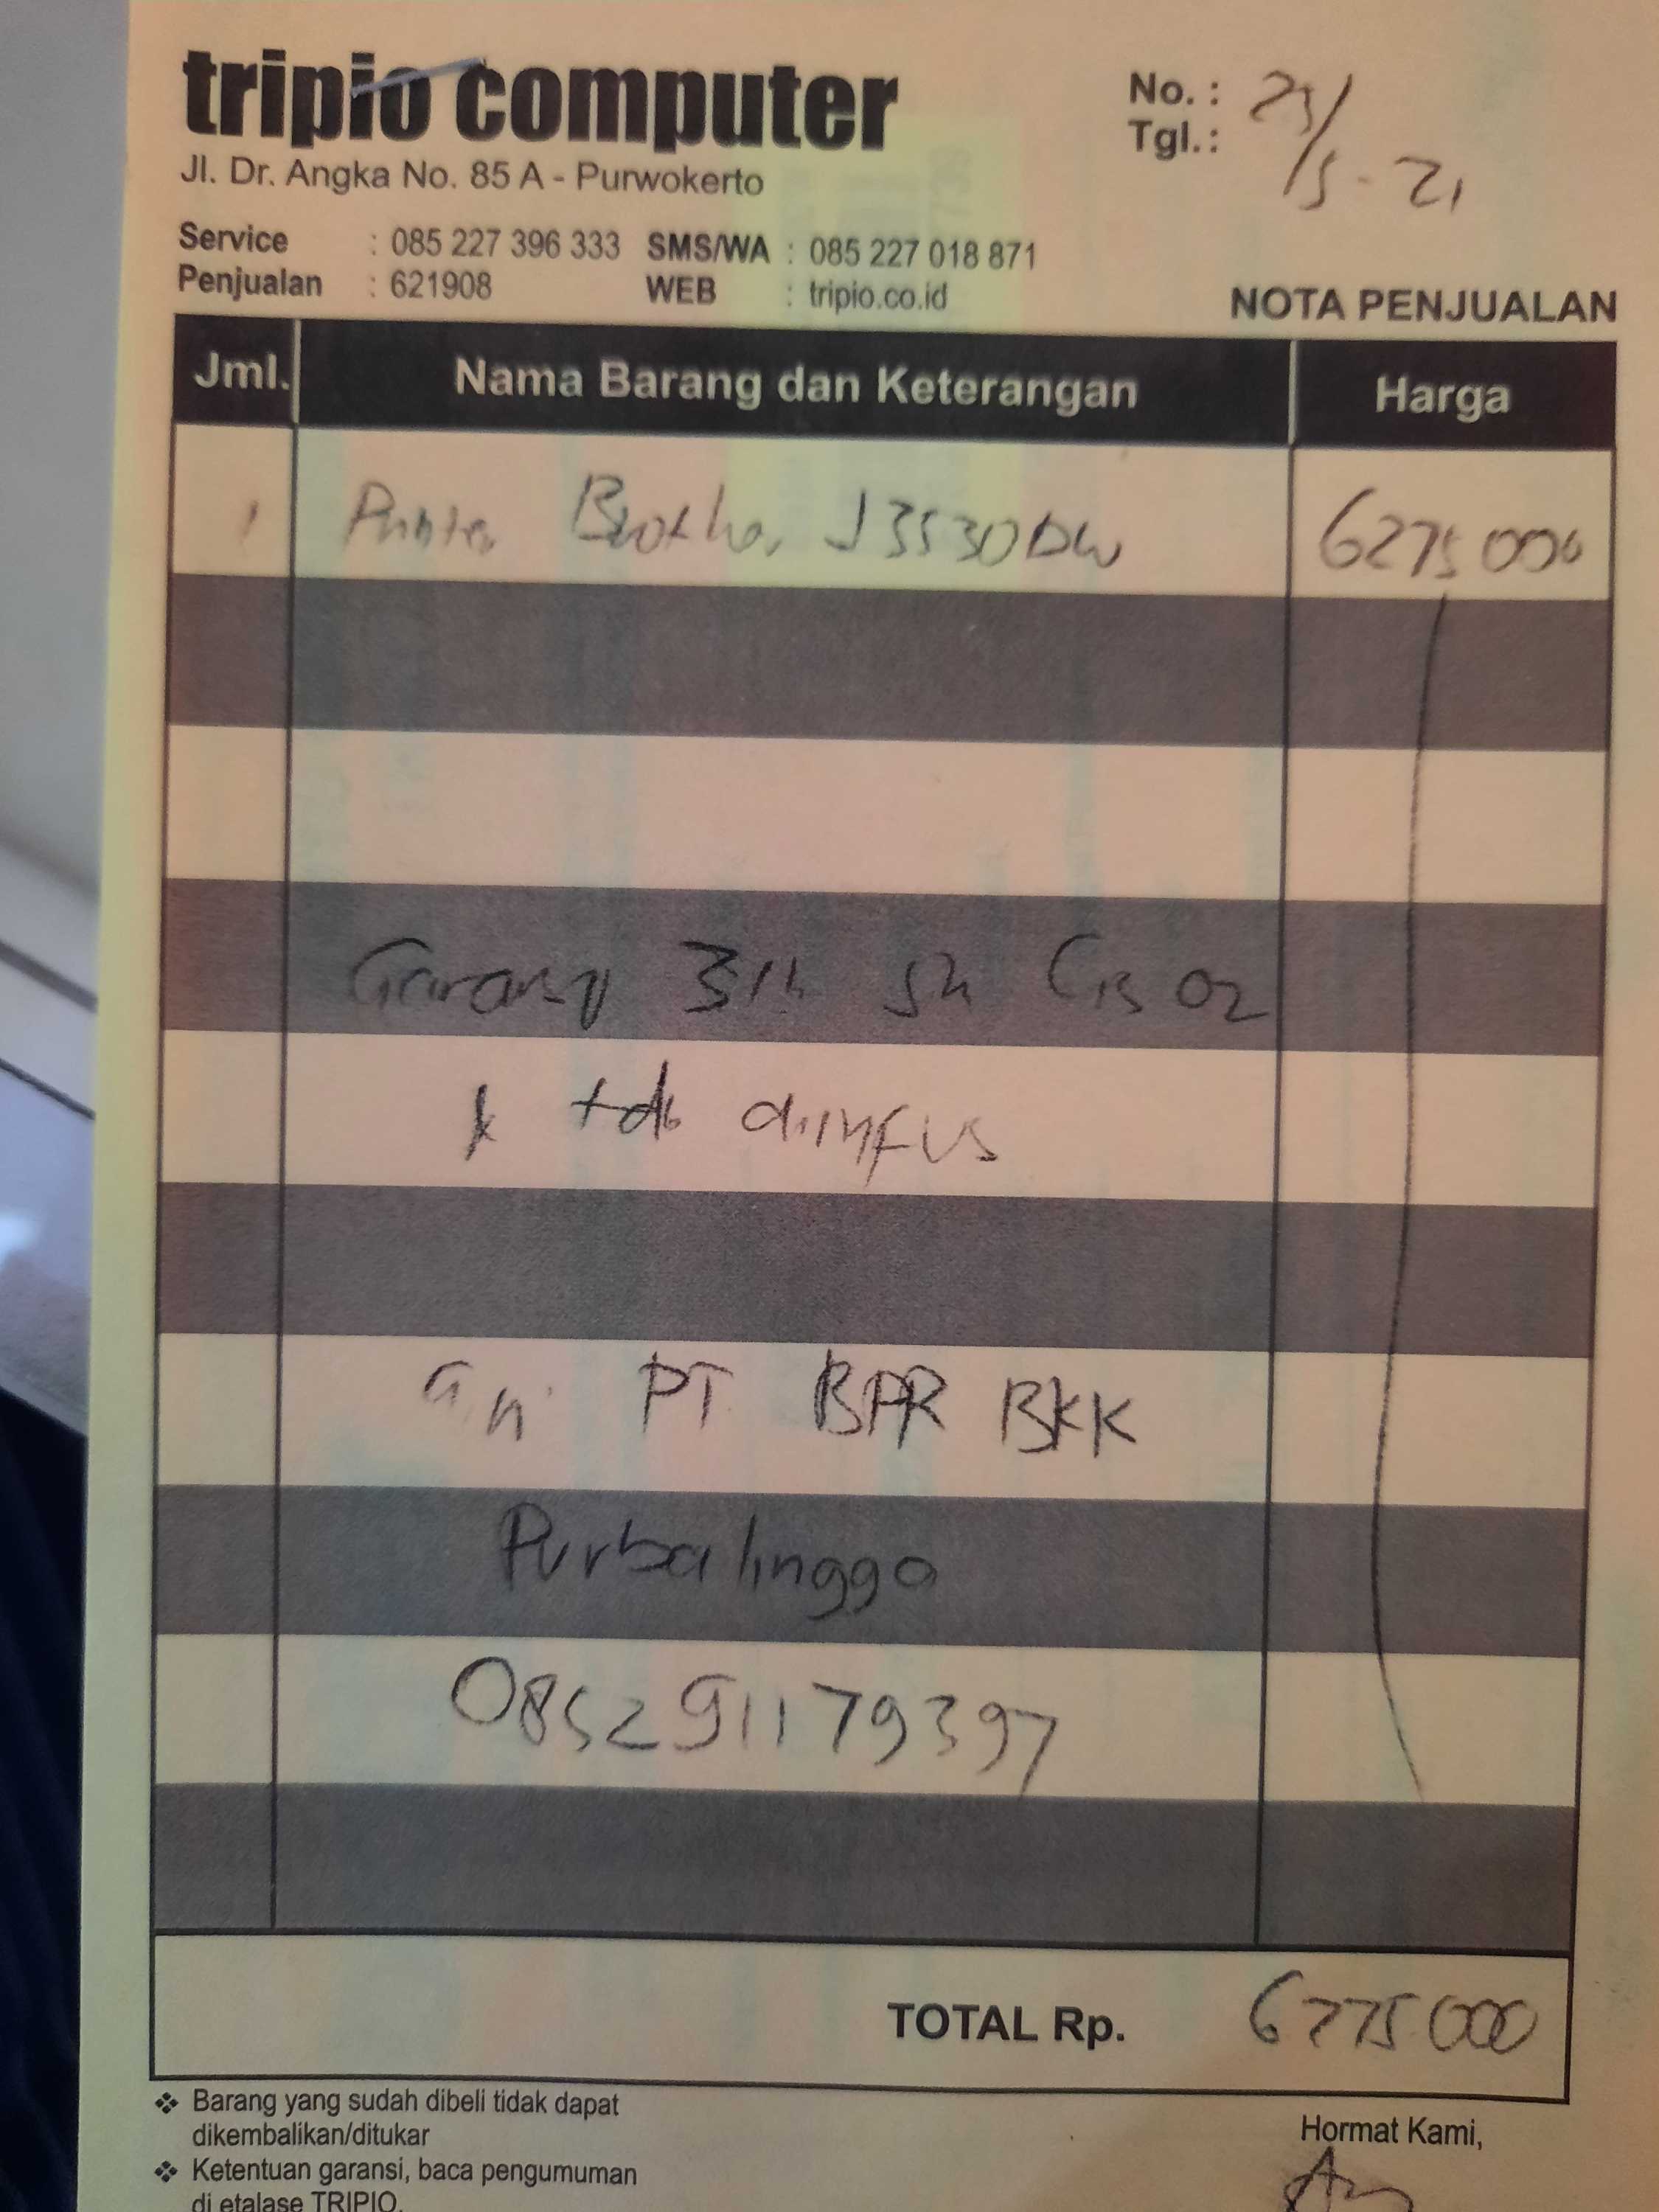 tripio computer
Jl. Dr. Angka No. 85 A - Purwokerto
No. :
Tgl.: 25/5-21
Service : 085 227 396 333 SMS/WA : 085 227 018 871
Penjualan : 621908 WEB : tripio.co.id
NOTA PENJUALAN
Jml. Nama Barang dan Keterangan Harga
1 Printer Brother J3530DW 6275000
Garansi 3th
tdk diinfus
a.n. PT BPR BKK
Purbalingga
085291179397
TOTAL Rp. 6275000
❖ Barang yang sudah dibeli tidak dapat
dikembalikan/ditukar
Hormat Kami,
❖ Ketentuan garansi, baca pengumuman
di etalase TRIPIO.